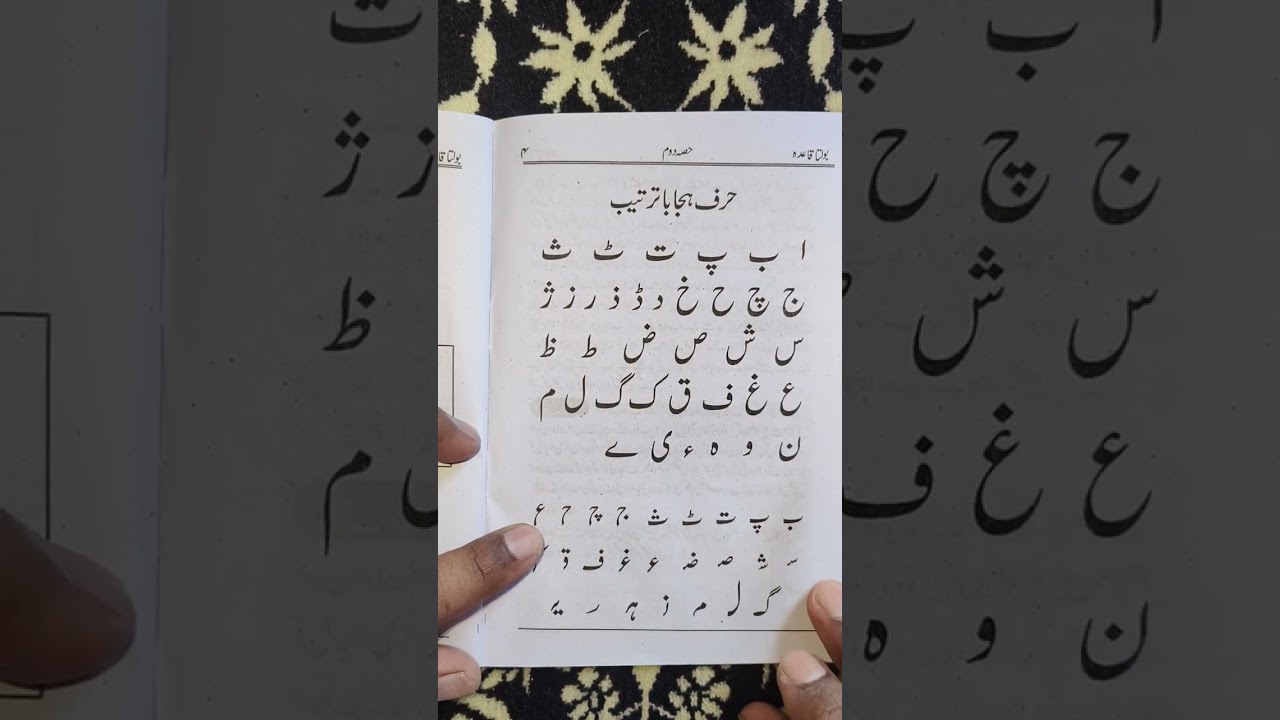 بولتا قاعدہ حصہ دوم ۴
حرف ہجا با ترتیب
ا ب پ ت ٹ ث
ج چ ح خ د ڈ ذ ر ز ژ
س ش ص ض ط ظ
ع غ ف ق ک گ ل م
ن و ہ ء ی ے
ب پ ت ٹ ث ج چ ح ع
سـ شـ صـ ضـ عـ غـ ف قـ
گـ ل مـ نـ ہـ ر یـ